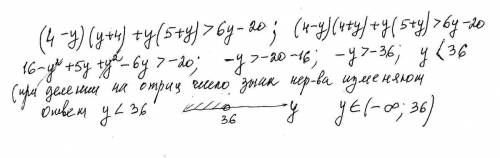 (4-y)(y+4)+y(5+y)>6y-20; (4-y)(4+y)+y(5+y)>6y-20
16-y²+5y+y²-6y>-20; -y>-20-16; -y>-36; y<36
(при делении на отриц число знак нер-ва изменяют
ответ y<36 36 y y∈(-∞; 36)